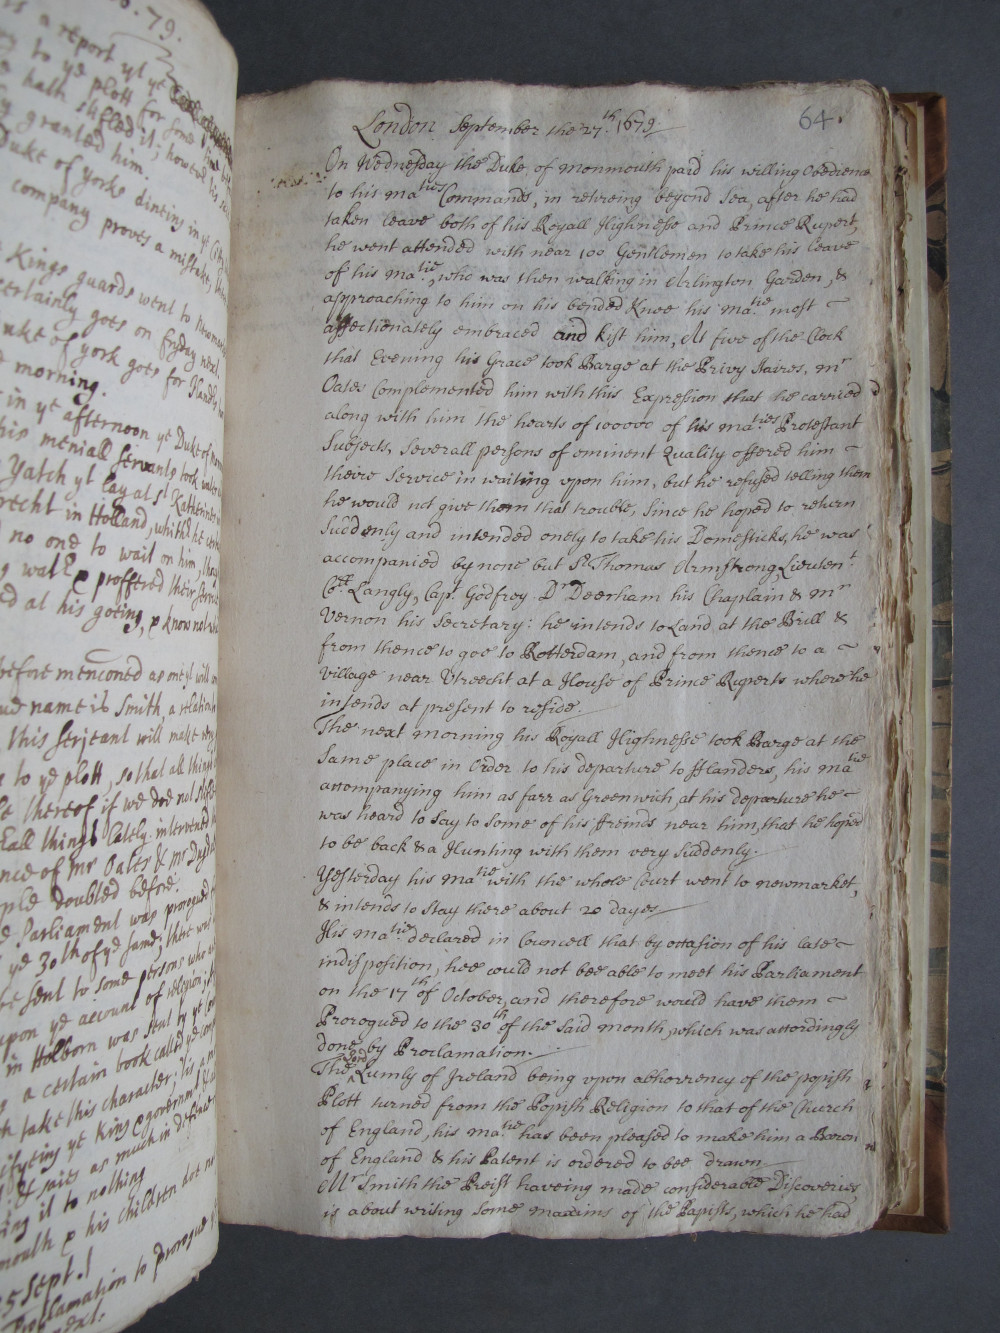 . 79.
is a report yt ye
to ye plott for some
hath stifled it; howeve his
granted him.
Duke of yorke dineing in ye City
company proves a mistake,
Kings guards went to Newmar
certainly goes on fryday next
Duke of york goes for fland
morning.
in ye afternoon ye Duke of mon
his meniall servants took water
yatch yt lay at st Katherines
recht in Holland, whither he
no one to wait on him,
proffered their servi
ed at his goeing, & know not
before menconed as one yt will
name is Smith, a relation
this serjeant will make
to ye plott, so that all things
thereof if we doe not
all things lately intervened
nce of mr Oates & mr
ple doubled before.
Parliament was prorogued
ye 30th of ye same; there was
be sent to some persons who
upon ye account of religion;
in Holborn was sent by ye
a certain book called ye
take this character; tis a
ye King & govermt
& saies as much in defence
ing it to nothing
mouth & his children
5 Sept.
Proclamation to prorogue
next.
64.
London September the 27.th 1679
On Wednesday the Duke of Monmouth paid his willing Obedience
to his maties Commands, in retireing beyond Sea, after he had
taken leave both of his Royall Highnesse and Prince Rupert,
he went attended with near 100 Gentlemen to take his leave
of his matie, who was then walking in Arlington Garden, &
approaching to him on his bended Knee his matie most
affectionately embraced and kist him, At five of the Clock
that Evening his Grace took Barge at the Privy Staires, mr
Oates Complemented him with this Expression that he carried
along with him the hearts of 100000 of his maties Protestant
Subjects, Severall persons of eminent Quality offered him
theire Service in waiting upon him, but he refused telling them
he would not give them that trouble, Since he hoped to return
Suddenly and intended onely to take his Domesticks, he was
accompanied by none but Sr. Thomas Armstrong, Lieutent.
Coll. Langly, Cap.t Godfrey Dr Deerham his Chaplain & mr
Vernon his Secretary: he intends to Land at the Brill &
from thence to goe to Rotterdam, and from thence to a
Village near Utrecht at a House of Prince Ruperts where he
intends at present to reside.
The next morning his Royall Highnesse took Barge at the
Same place in Order to his departure to fflanders, his matie
accompanying him as farr as Greenwich, at his departure he
was heard to Say to Some of his ffreinds near him, that he hoped
to be back & a Hunting with them very Suddenly.
Yesterday his matie with the whole Court went to Newmarket,
& intends to Stay there about 20 dayes
His matie declared in Councell that by occasion of his late
indisposition, hee could not bee able to meet his Parliament
on the 17th of October, and therefore would have them
Prorogued to the 30th of the Said month, which was accordingly
done by Proclamation.
The Lord Lumly of Ireland being upon abhorrency of the popish
Plott turned from the Popish Religion to that of the Church
of England, his matie has been pleased to make him a Baron
of England & his Patent is ordered to bee drawn
Mr Smith the Preist haveing made considerable Discoveries,
is about writing Some maxims of the Papists, which he had